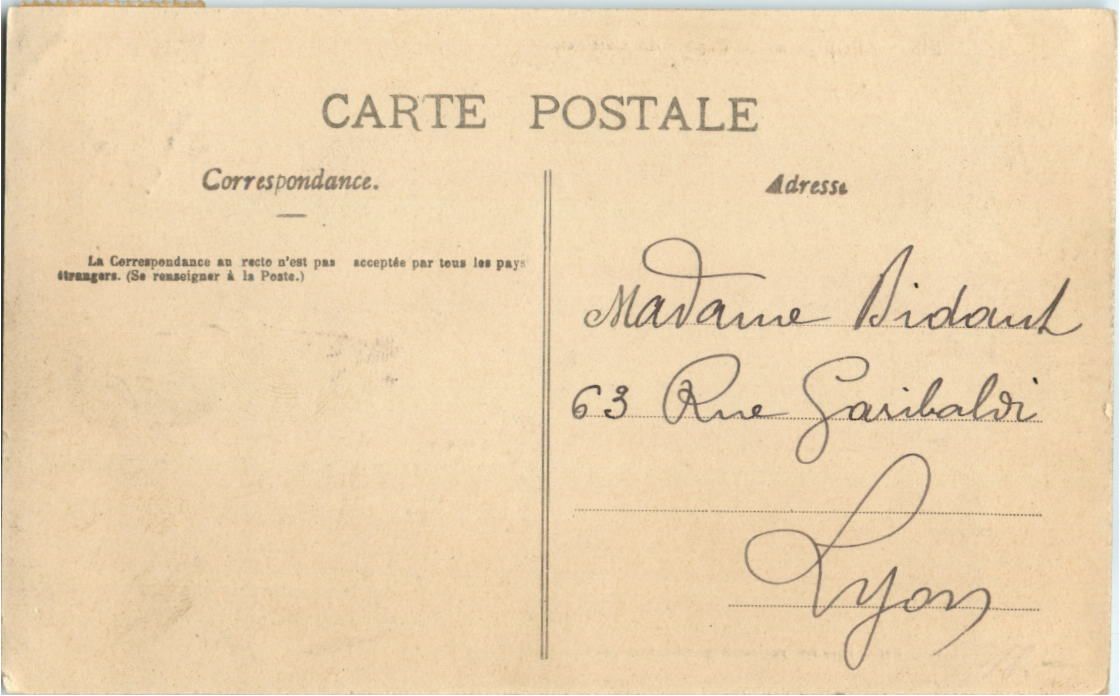 CARTE POSTALE
Correspondance.
Adresse
La Correspondance au recto n'est pas acceptée par tous les pays
étrangers. (Se renseigner à la Poste.)
Madame Bidault
63 Rue Garibaldi
Lyon